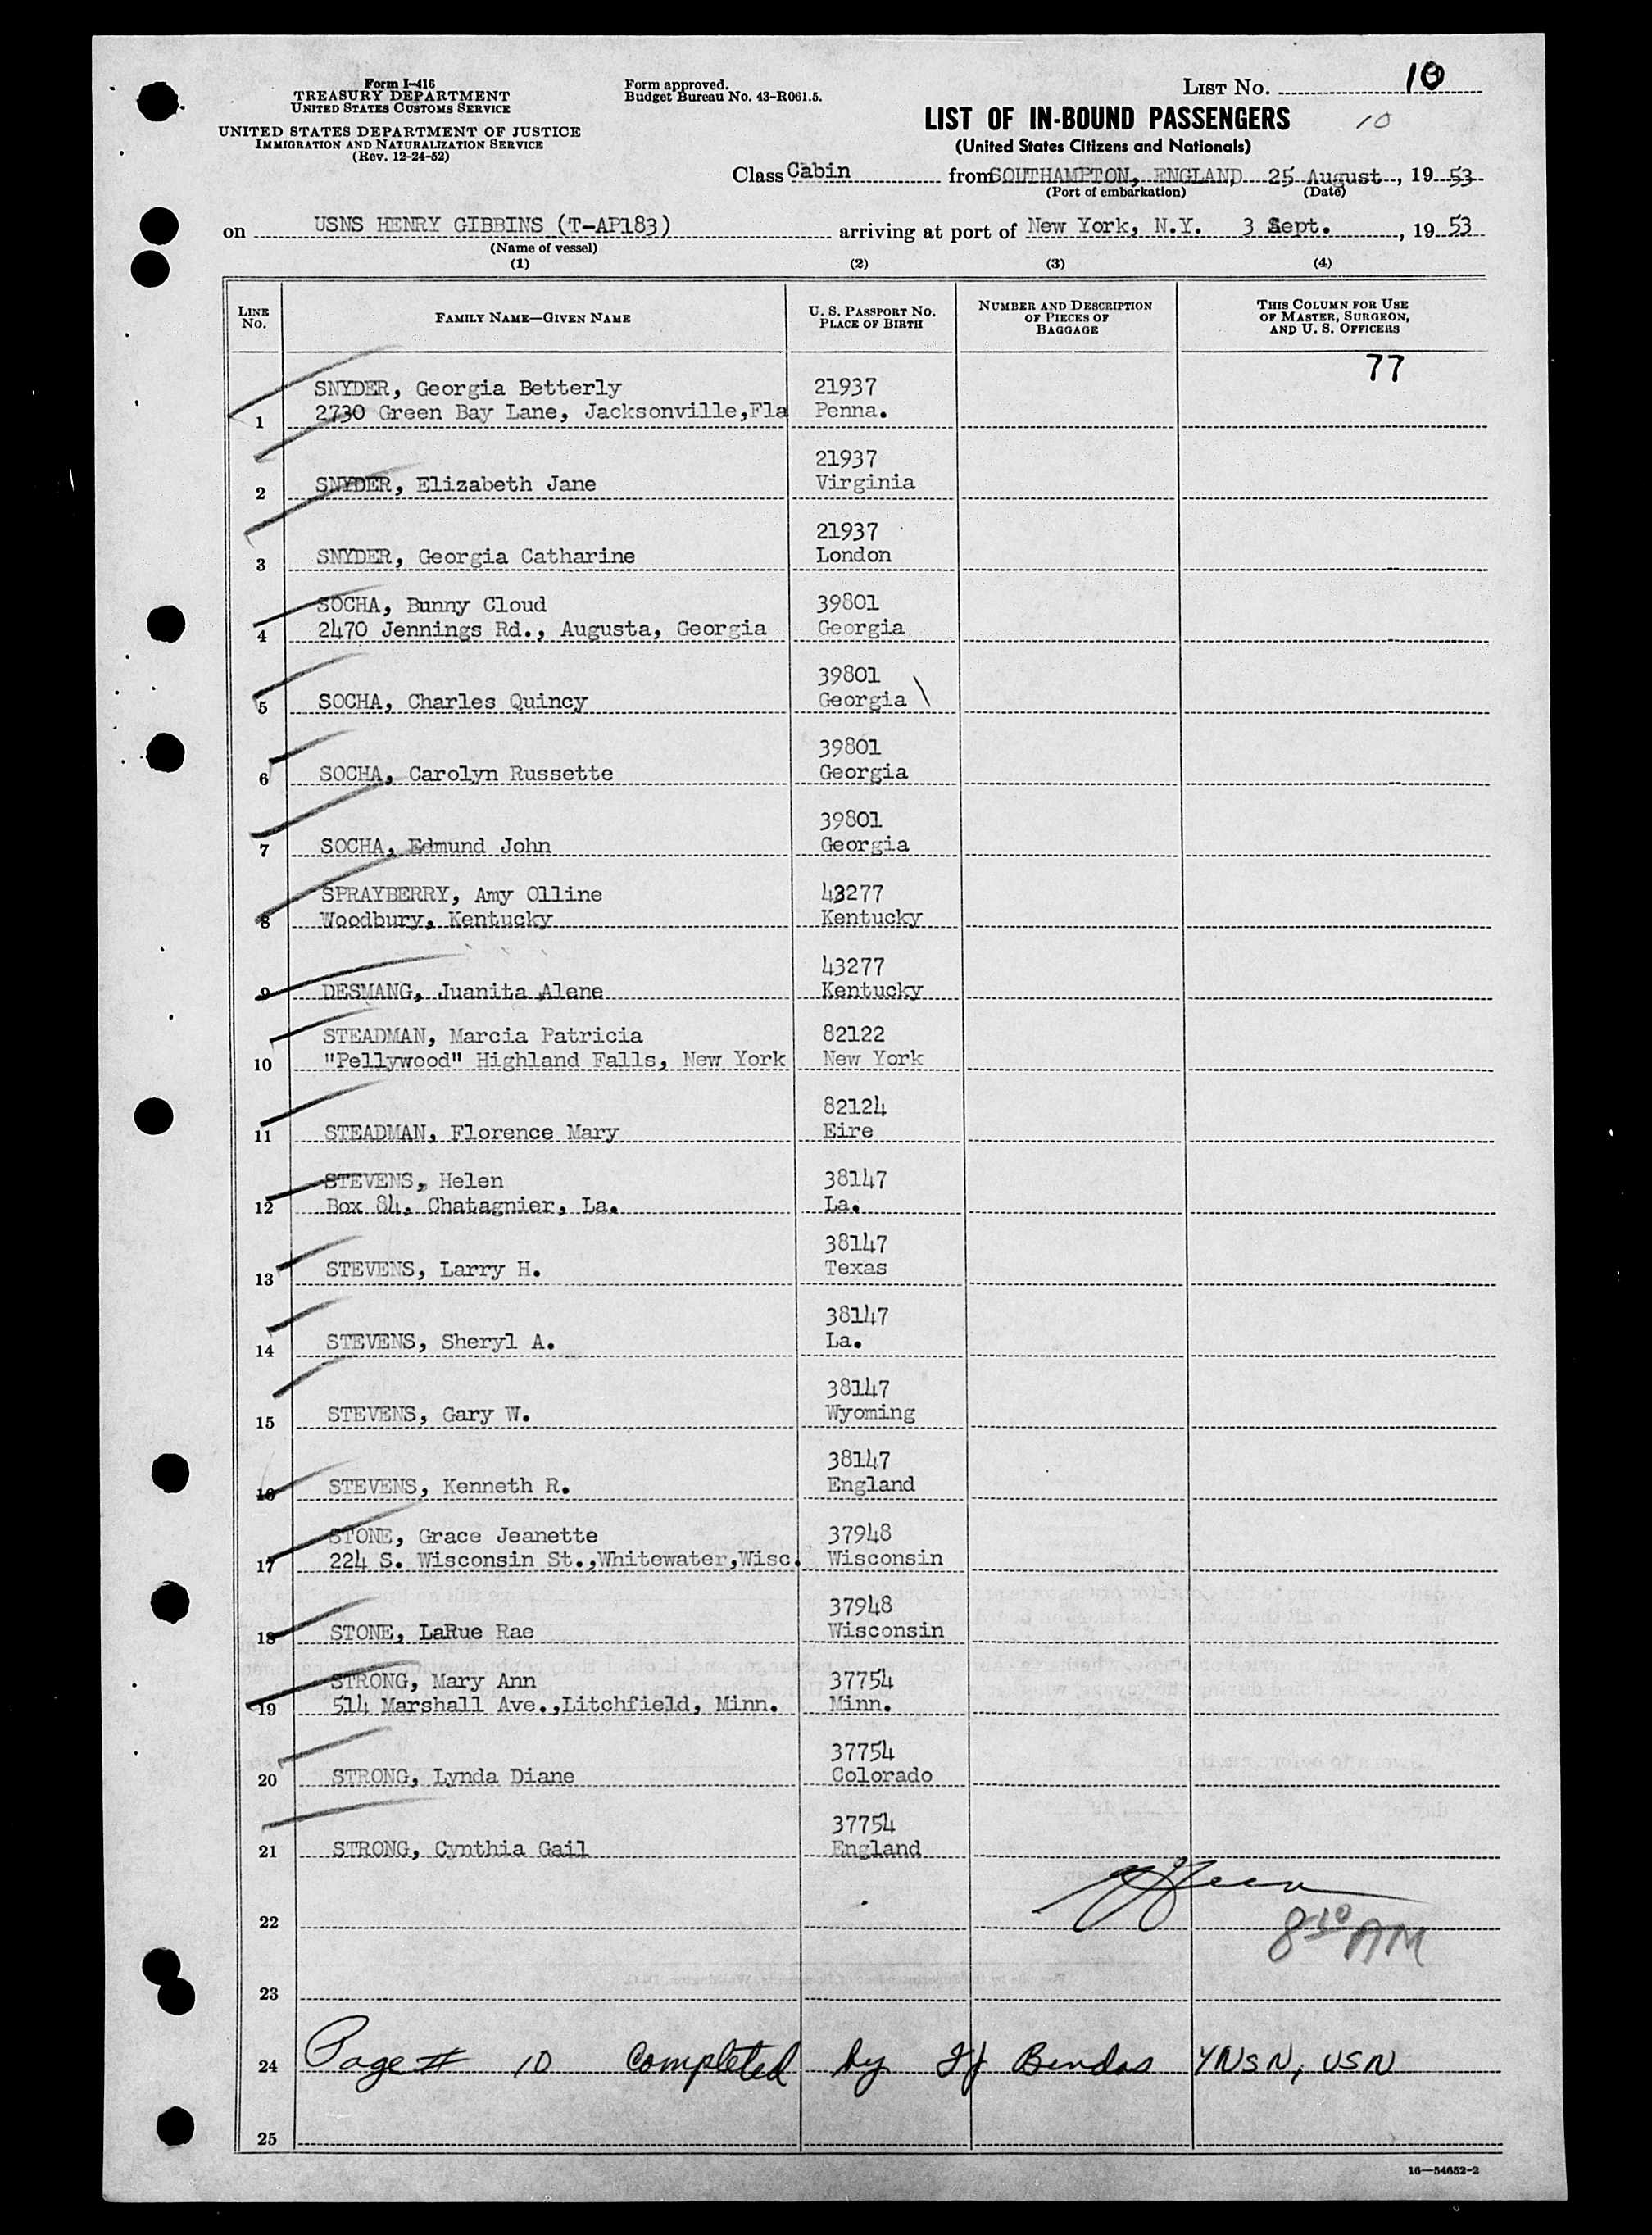 Form I-416
TREASURY DEPARTMENT
UNITED STATES CUSTOMS SERVICE
UNITED STATES DEPARTMENT OF JUSTICE
IMMIGRATION AND NATURALIZATION SERVICE
(Rev. 12-24-52)
Form approved.
Budget Bureau No. 43-R061.5.
LIST NO. 10
LIST OF IN-BOUND PASSENGERS 10
(United States Citizens and Nationals)
Class Cabin from SOUTHAMPTON, ENGLAND 25 August, 1953
(Port of embarkation) (Date)
on USNS HENRY GIBBINS (T-AP183) arriving at port of New York, N.Y. 3 Sept., 1953
(Name of vessel)
(1) (2) (3) (4)
LINE NO. FAMILY NAME—GIVEN NAME U. S. PASSPORT NO. PLACE OF BIRTH NUMBER AND DESCRIPTION OF PIECES OF BAGGAGE THIS COLUMN FOR USE OF MASTER, SURGEON, AND U. S. OFFICERS
77
SNYDER, Georgia Betterly 21937
1 2730 Green Bay Lane, Jacksonville,Fla Penna.
21937
2 SNYDER, Elizabeth Jane Virginia
21937
3 SNYDER, Georgia Catharine London
SOCHA, Bunny Cloud 39801
4 2470 Jennings Rd., Augusta, Georgia Georgia
39801
5 SOCHA, Charles Quincy Georgia \
39801
6 SOCHA, Carolyn Russette Georgia
39801
7 SOCHA, Edmund John Georgia
SPRAYBERRY, Amy Olline 43277
8 Woodbury, Kentucky Kentucky
43277
9 DESMANG, Juanita Alene Kentucky
STEADMAN, Marcia Patricia 82122
10 "Pellywood" Highland Falls, New York New York
82124
11 STEADMAN, Florence Mary Eire
STEVENS, Helen 38147
12 Box 84, Chatagnier, La. La.
38147
13 STEVENS, Larry H. Texas
38147
14 STEVENS, Sheryl A. La.
38147
15 STEVENS, Gary W. Wyoming
38147
16 STEVENS, Kenneth R. England
STONE, Grace Jeanette 37948
17 224 S. Wisconsin St.,Whitewater,Wisc. Wisconsin
37948
18 STONE, LaRue Rae Wisconsin
STRONG, Mary Ann 37754
19 514 Marshall Ave.,Litchfield, Minn. Minn.
37754
20 STRONG, Lynda Diane Colorado
37754
21 STRONG, Cynthia Gail England
22
8 30 AM
23
24 Page # 10 completed by Bendas YNSN, USN
25
16—54652-2